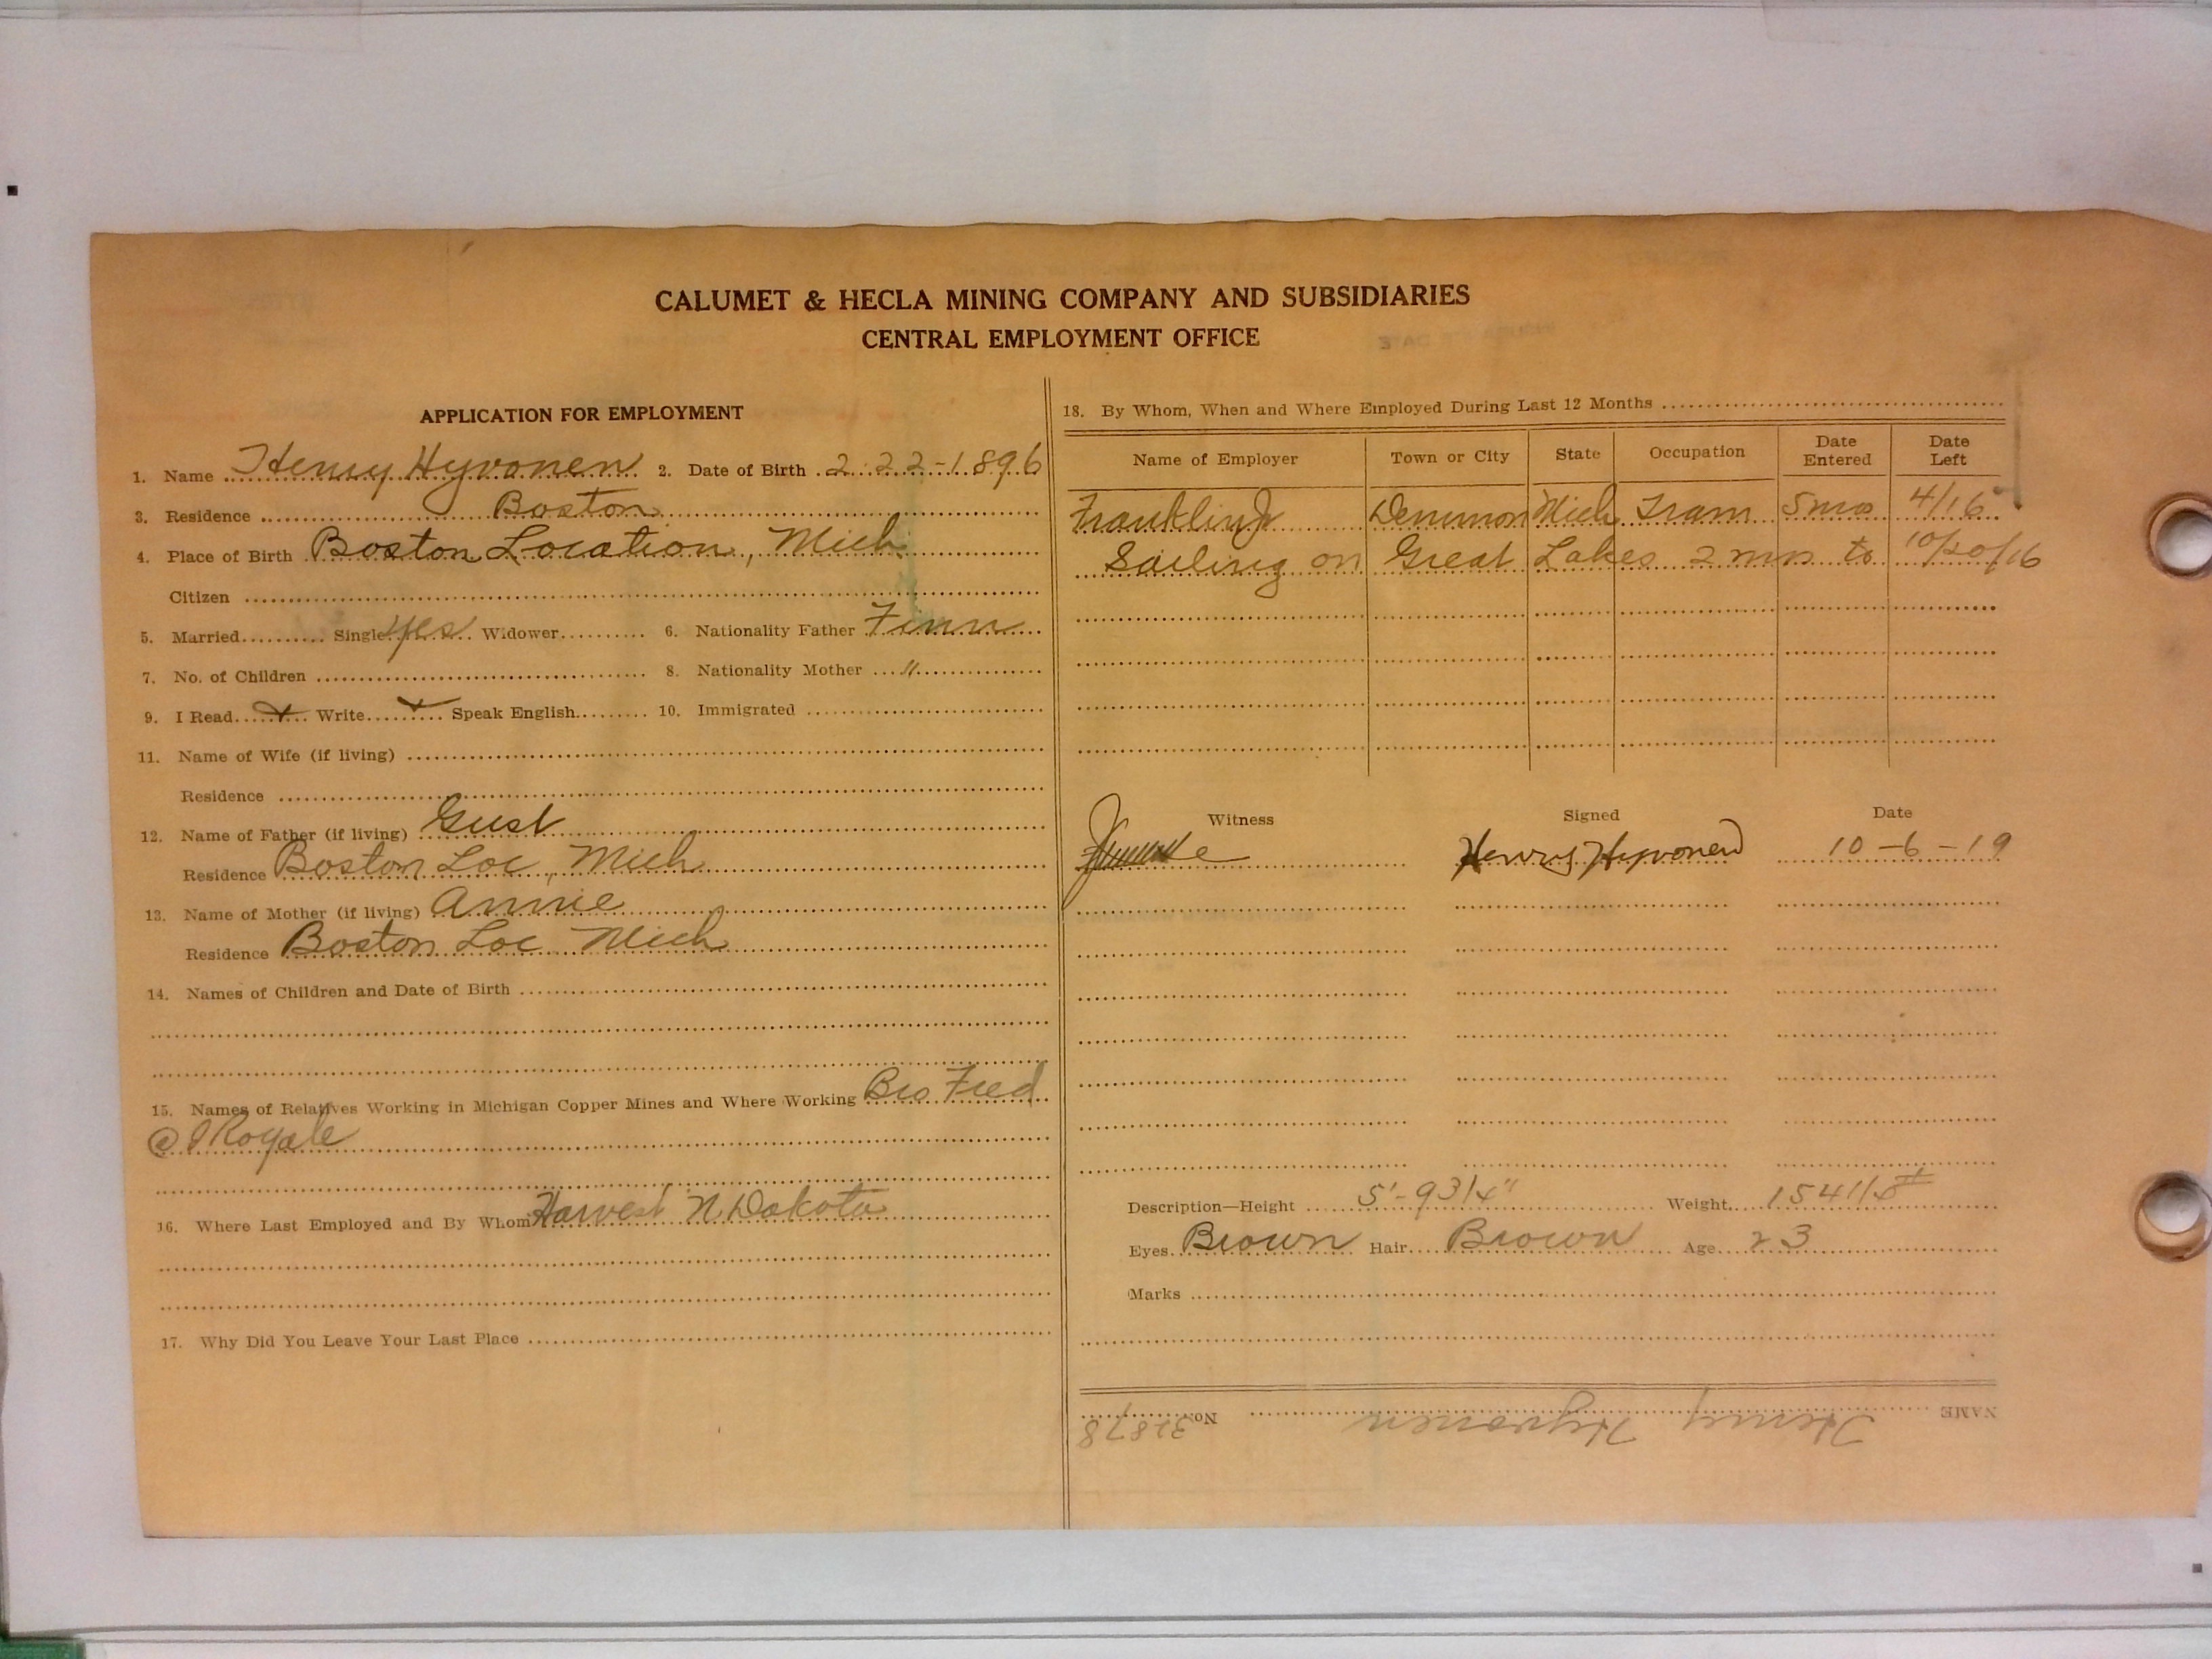 CALUMET & HECLA MINING COMPANY AND SUBSIDIARIES
CENTRAL EMPLOYMENT OFFICE
APPLICATION FOR EMPLOYMENT
1. Name Henry Hyvonen 2. Date of Birth 2-22-1896
3. Residence Boston
4. Place of Birth Boston Location, Mich
Citizen
5. Married Single yes Widower 6. Nationality Father Finn
7. No. of Children 8. Nationality Mother "
9. I Read x Write x Speak English 10. Immigrated
11. Name of Wife (if living)
Residence
12. Name of Father (if living) Gust
Residence Boston Loc, Mich
13. Name of Mother (if living) Annie
Residence Boston Loc Mich
14. Names of Children and Date of Birth
15. Names of Relatives Working in Michigan Copper Mines and Where Working Bro Fred
@ I Royale
16. Where Last Employed and By Whom Harvest N. Dakota
17. Why Did You Leave Your Last Place
18. By Whom, When and Where Employed During Last 12 Months
Name of Employer Town or City State Occupation Date Entered Date Left
Franklin Jr Demmon Mich Tram 5 mos 4/16
Sailing on Great Lakes 2 mos to 10/20/16
Witness Signed Date
Henry Hyvonen 10-6-19
Description—Height 5'-9 3/4" Weight 154 1/2 #
Eyes Brown Hair Brown Age 23
Marks
NAME Henry Hyvonen No. 31878